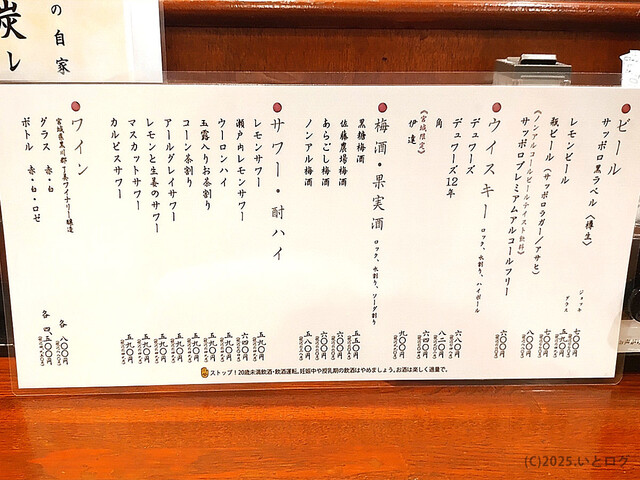 の自家
炭
レ
ビール
サッポロ黒ラベル〈樽生〉
ジョッキ 七〇〇円
グラス 五九〇円
レモンビール 七〇〇円
瓶ビール（サッポロラガー／アサヒ） 八〇〇円
《ノンアルコールビールテイスト飲料》
サッポロプレミアムアルコールフリー 六〇〇円
ウイスキー ロック、水割り、ハイボール
デュワーズ 六八〇円
デュワーズ12年 八二〇円
角 六四〇円
《宮城限定》
伊達 九〇〇円
梅酒・果実酒 ロック、水割り、ソーダ割り
黒糖梅酒 五五〇円
佐藤農場梅酒 六〇〇円
あらごし梅酒 六〇〇円
ノンアル梅酒 五八〇円
サワー・酎ハイ
レモンサワー 五九〇円
瀬戸内レモンサワー 六四〇円
ウーロンハイ 五九〇円
玉露入りお茶割り 五九〇円
コーン茶割り 五九〇円
アールグレイサワー 五九〇円
レモンと生姜のサワー 五九〇円
マスカットサワー 五九〇円
カルピスサワー 五九〇円
ワイン
宮城県黒川郡 了美ワイナリー醸造
グラス 赤・白 各 八〇〇円
ボトル 赤・白・ロゼ 各 四、五〇〇円
ストップ！20歳未満飲酒・飲酒運転。妊娠中や授乳期の飲酒はやめましょう。お酒は楽しく適量で。
(C)2025.いとログ